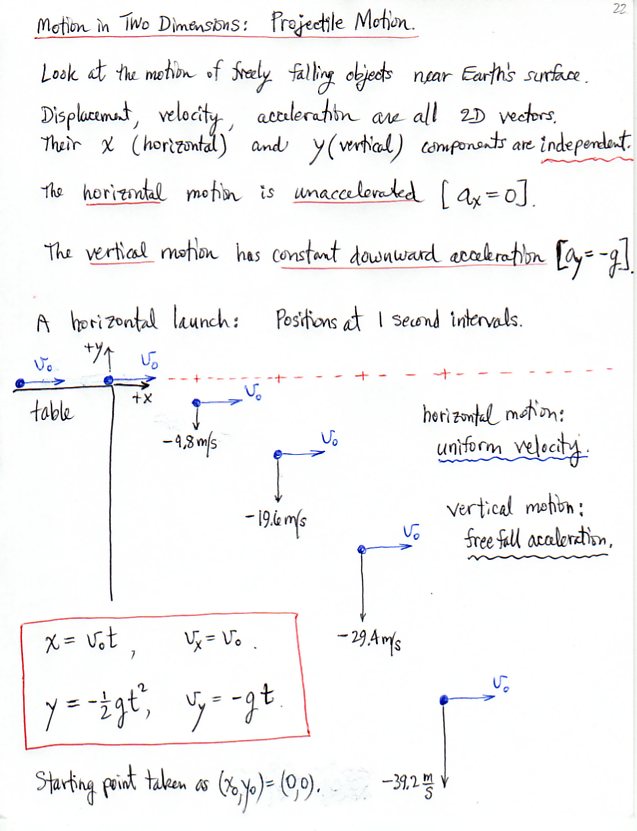 22
Motion in Two Dimensions: Projectile Motion.
Look at the motion of freely falling objects near Earth's surface.
Displacement, velocity, acceleration are all 2D vectors.
Their x (horizontal) and y (vertical) components are independent.
The horizontal motion is unaccelerated [ax=0].
The vertical motion has constant downward acceleration [ay=-g].
A horizontal launch: Positions at 1 second intervals.
v₀ +y v₀
+x
table
v₀
-9.8 m/s
horizontal motion:
uniform velocity.
v₀
-19.6 m/s
vertical motion:
free fall acceleration.
v₀
-29.4 m/s
x = v₀t, vx = v₀.
y = -½gt², vy = -gt.
v₀
-39.2 m/s
Starting point taken as (x₀,y₀)=(0,0).